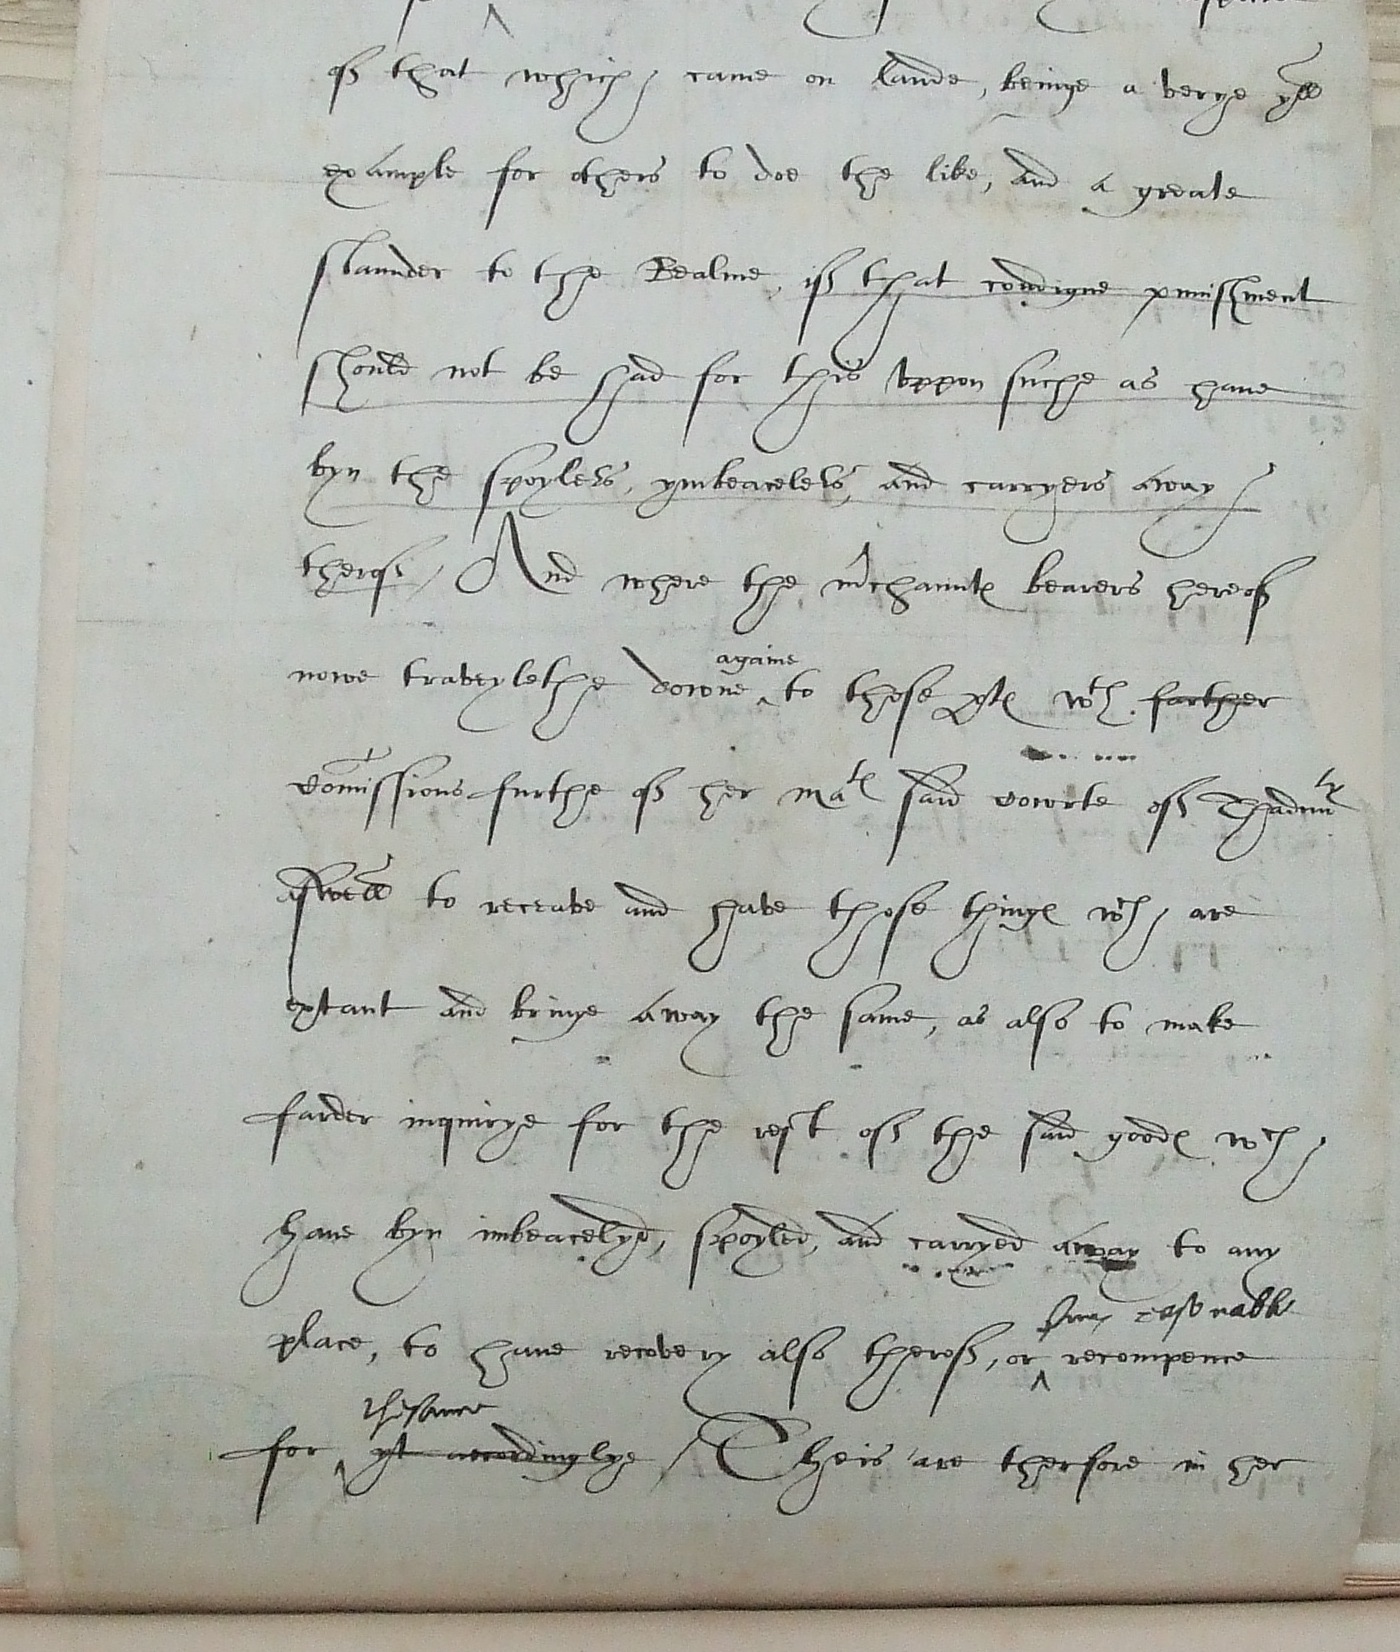 of that which came on lande, beinge a verye yll
example for others to doe the like, and a greate
slaunder to the Realme, if that condigne punishment
should not be had for this vppon suche as haue
byn the spoylers, ymbeacelers, and carryers away
therof / And where the mrchauntes bearers hereof
againe
nowe traveylethe downe ^ to those ptes wth farther
Comissions furthe of her Mates said Cowrte of Thadmirltye
aswell to receave and have those thinges wch are
extant and bringe away the same, as also to make
farder inquirye for the rest of the said goodes wch
haue byn imbeacelyd, spoyled, and carryed away to any
sum resonable
place, to haue recovery also therof, or ^ recompence
the same
for ^ yt accordinglye / Theis are therfore in her